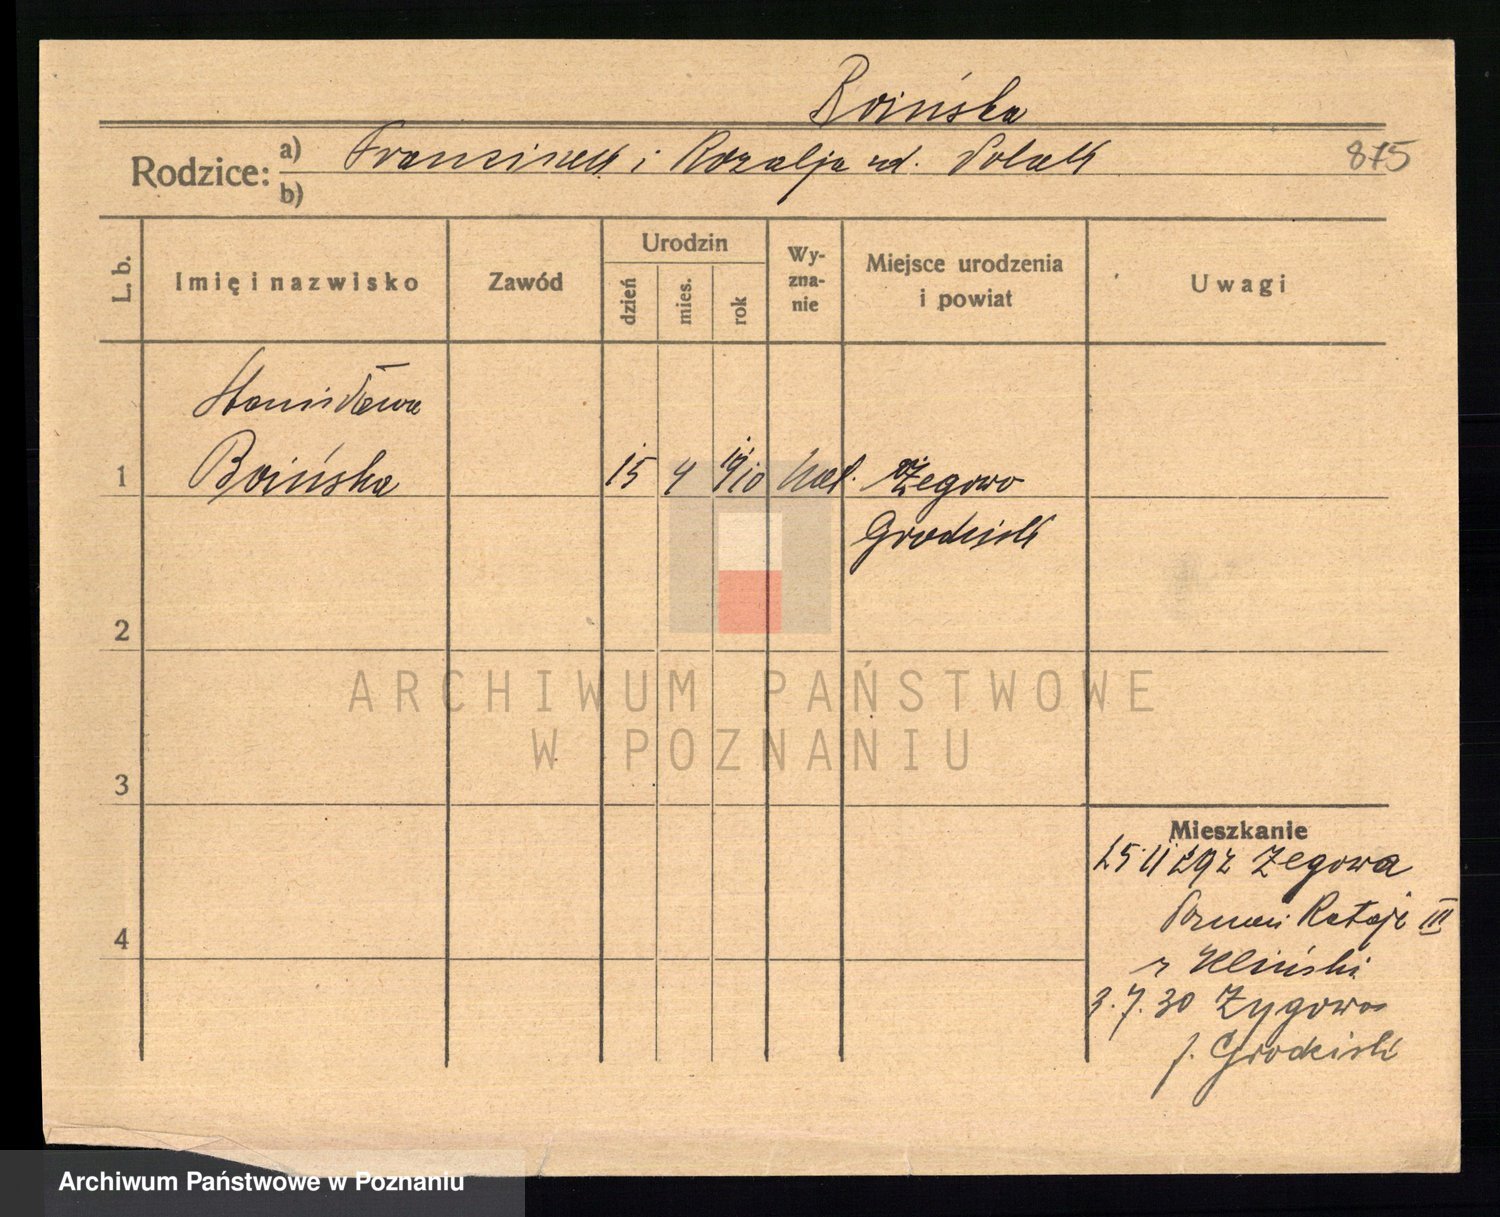 Boińska
Rodzice: a) Franciszek i Rozalja zd. Polak 875
b)
L. b. Imię i nazwisko Zawód Urodzin dzień mies. rok Wy-zna-nie Miejsce urodzenia i powiat Uwagi
Stanisława
1 Boińska 15 4 1910 kat. Żegowo
Grodzisk
2
ARCHIWUM PAŃSTWOWE
W POZNANIU
3
Mieszkanie
25 II 29 z Żegowa
4 Poznań Rataje III
Kliński
3.7.30 Zygowo
p. Grodzisk
Archiwum Państwowe w Poznaniu